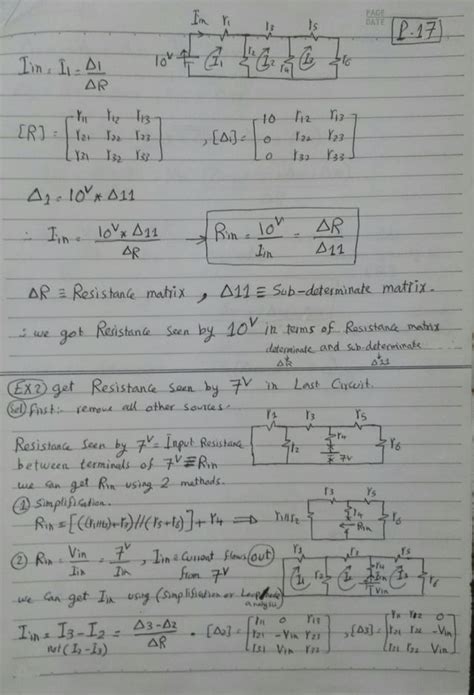 PAGE
DATE
P.17
Iin r1 r2 r5
10V I1 r2 I2 r4 I3 r6
Iin = I1 = Δ1 / ΔR
[R] = [r11 r12 r13; r21 r22 r23; r31 r32 r33] , [Δ1] = [10 r12 r13; 0 r22 r23; 0 r32 r33]
Δ1 = 10V * Δ11
∴ Iin = 10V * Δ11 / ΔR → Rin = 10V / Iin = ΔR / Δ11
ΔR ≡ Resistance matrix , Δ11 ≡ Sub-determinate matrix.
∴ we got Resistance seen by 10V in terms of Resistance matrix
determinate and sub determinate
ΔR Δ11
EX2) get Resistance seen by 7V in Last Circuit.
Sol first:- remove all other sources.
r1 r3 r5
r2 r4 7V r6
Resistance seen by 7V = Input Resistance
between terminals of 7V ≡ Rin
we can get Rin using 2 methods.
① Simplification.
Rin = [((r1//r2)+r3)//(r5+r6)] + r4 ⇒ r1//r2 r3 r5 r4 Rin r6
② Rin = Vin / Iin = 7V / Iin , Iin = Current flows out
from 7V
r3 r5
I1 r2 I2 r4 Iin Vin I3 r6
we can get Iin using (Simplification or Loop
analysis)
Iin = I3 - I2 = Δ3 - Δ2 / ΔR . [Δ2] = [r11 0 r13; r21 -Vin r23; r31 Vin r33] , [Δ3] = [r11 r12 0; r21 r22 -Vin; r31 r32 Vin]
not (I2 - I3)